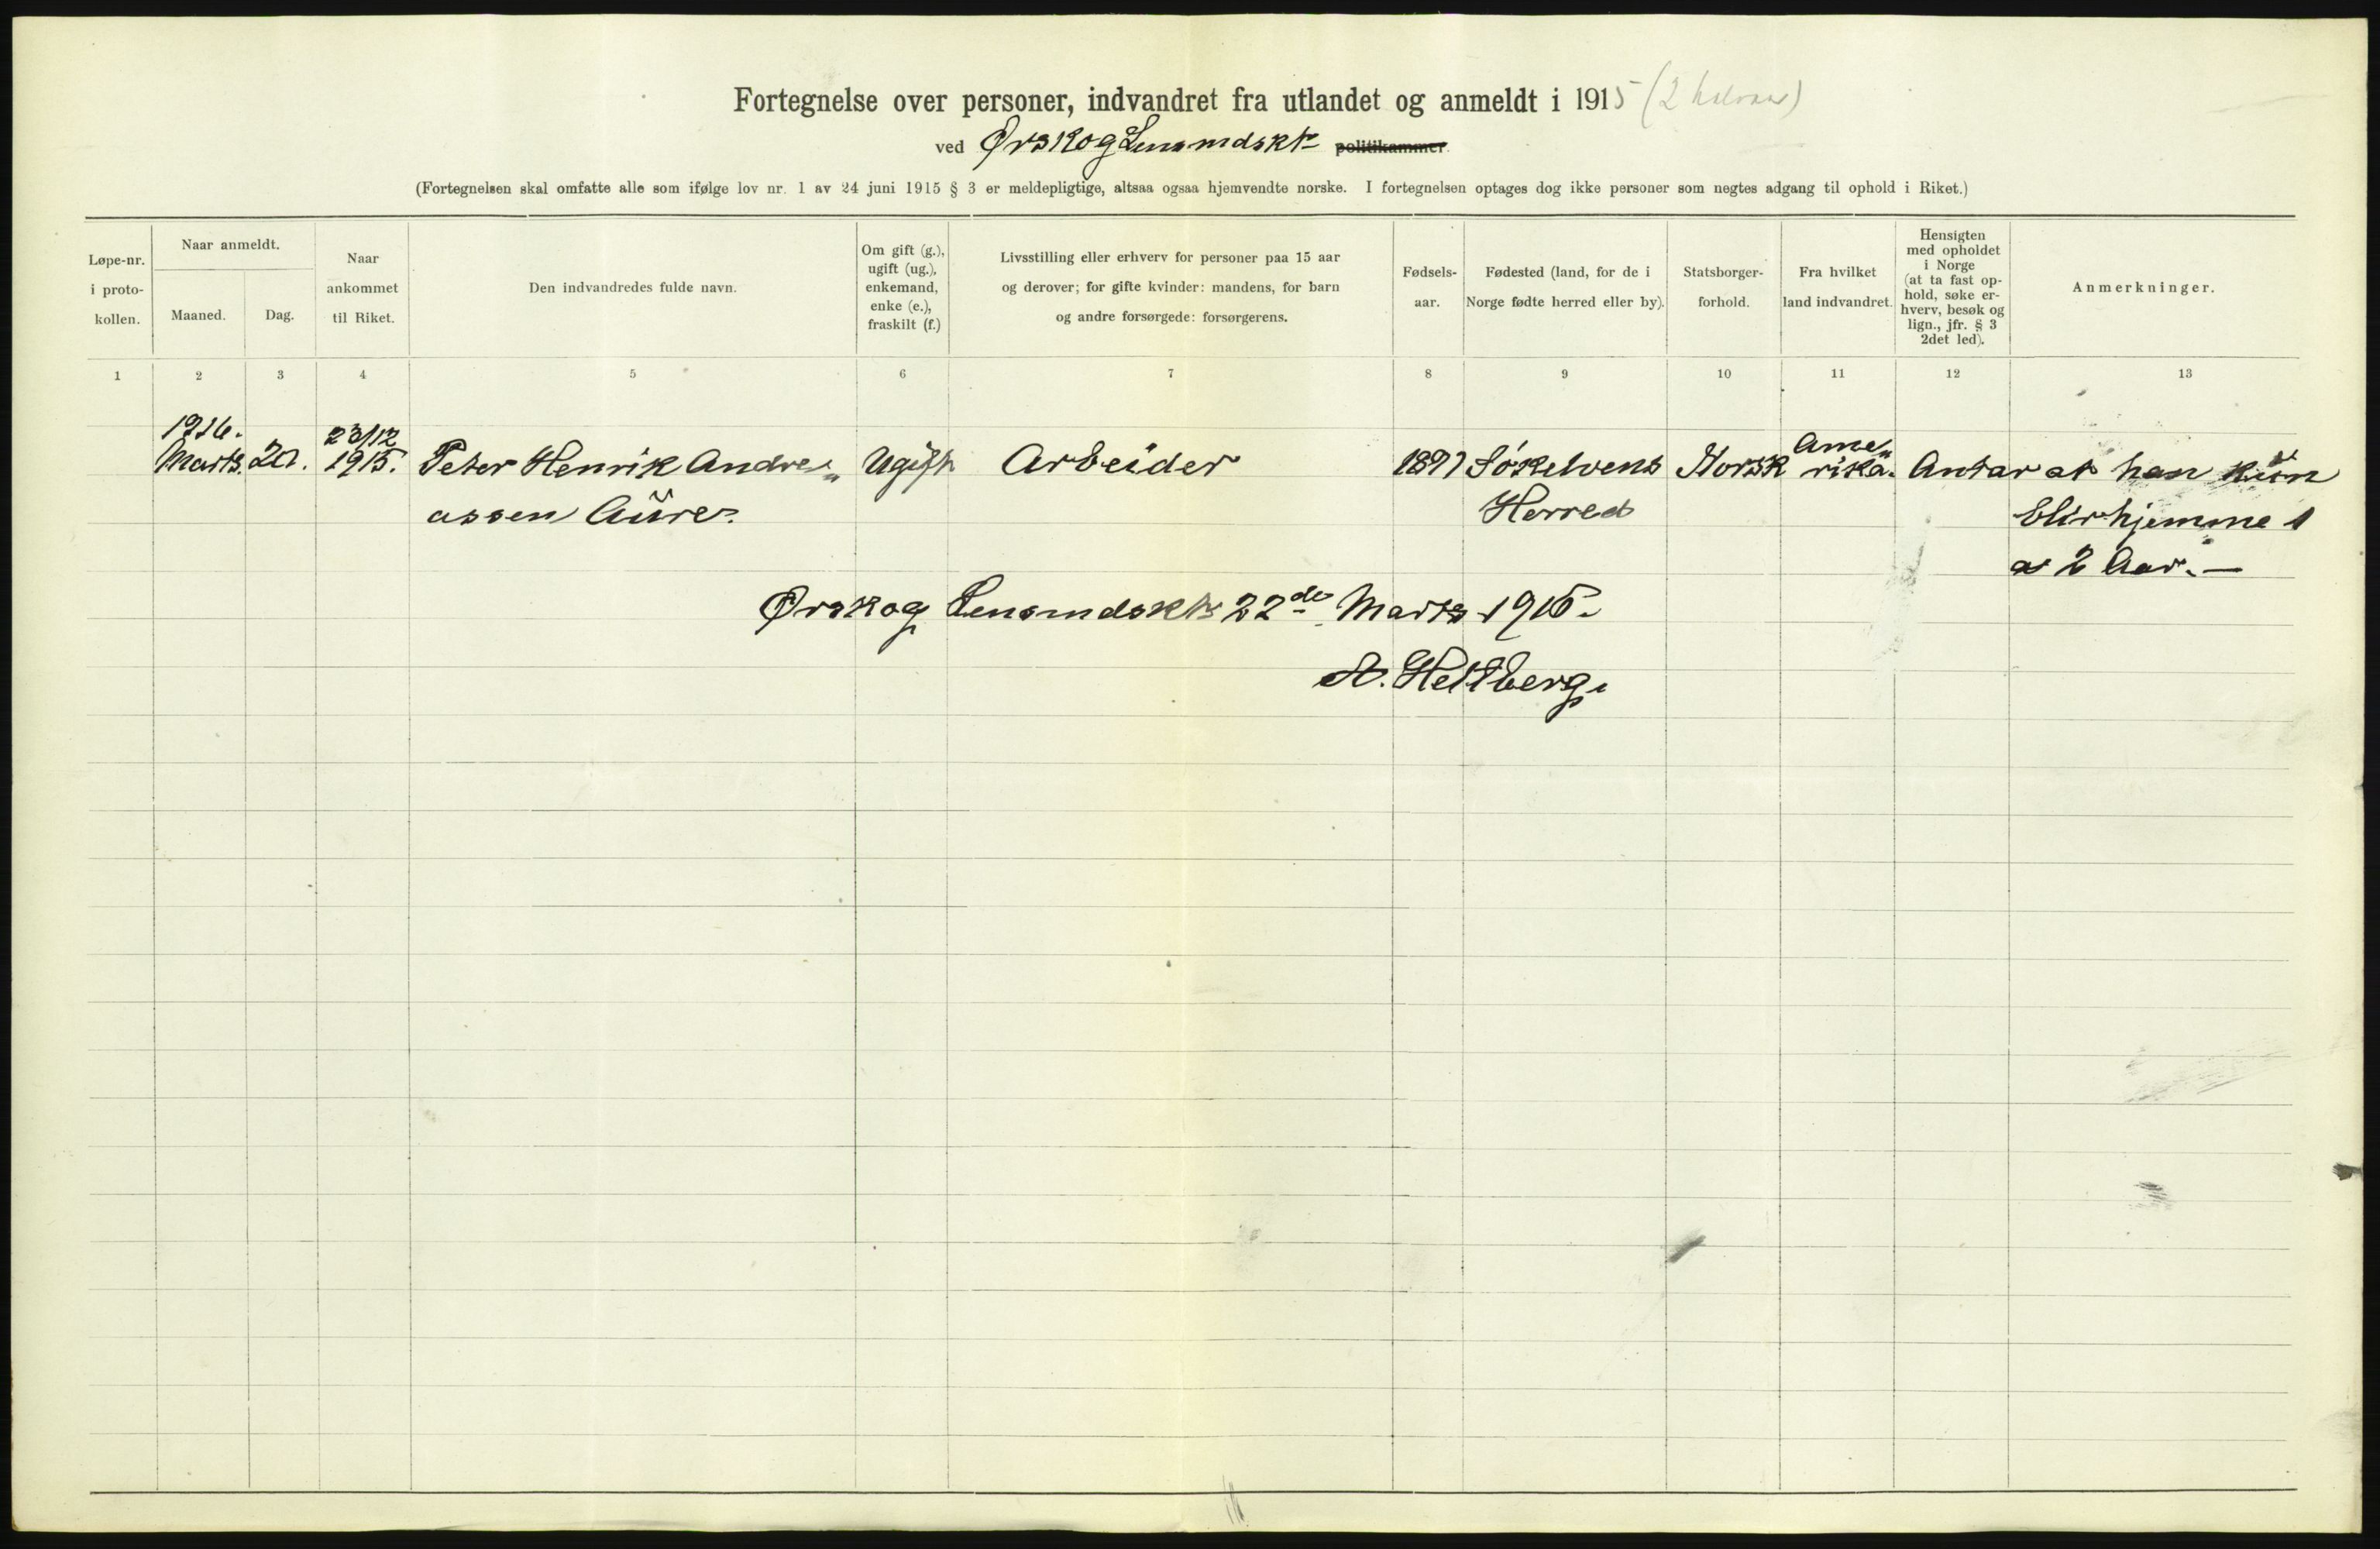 Fortegnelse over personer, indvandret fra utlandet og anmeldt i 1915 (2 halvaar)
ved Ørskog Lensmdskt politikammer.
(Fortegnelsen skal omfatte alle som ifølge lov nr. 1 av 24 juni 1915 § 3 er meldepligtige, altsaa ogsaa hjemvendte norske. I fortegnelsen optages dog ikke personer som negtes adgang til ophold i Riket.)
Løpe-nr.
i proto-
kollen.
Naar anmeldt.
Maaned.
Dag.
Naar
ankommet
til Riket.
Den indvandredes fulde navn.
Om gift (g.),
ugift (ug.),
enkemand,
enke (e.),
fraskilt (f.)
Livsstilling eller erhverv for personer paa 15 aar
og derover; for gifte kvinder: mandens, for barn
og andre forsørgede: forsørgerens.
Fødsels-
aar.
Fødested (land, for de i
Norge fødte herred eller by).
Statsborger-
forhold.
Fra hvilket
land indvandret.
Hensigten
med opholdet
i Norge
(at ta fast op-
hold, søke er-
hverv, besøk og
lign., jfr. § 3
2det led).
Anmerkninger.
1 2 3 4 5 6 7 8 9 10 11 12 13
1916. 23/12 Ame„
Marts. 20. 1915. Peter Henrik Andre„ Ugift Arbeider 1897 Søkelvens Norsk rika. Antar at han kun
assen Aure. Herred blir hjemme 1
a 2 Aar. —
Ørskog Lensmdskt 22de Marts 1916.
A. Heltberg.